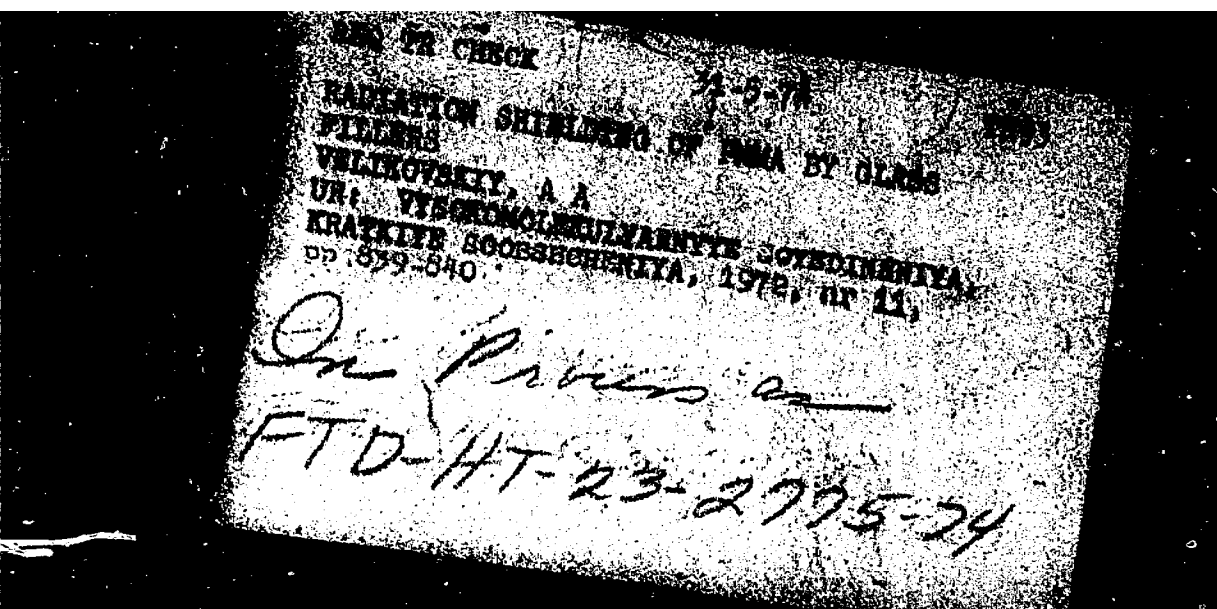 TR CHECK
RADIATION SHIELDING OF PMMA BY GLASS
FILLERS
VELIKOVSKIY, A A
UR: VYSOKOMOLEKULYARNYYE SOYEDINENIYA,
KRATKIYE SOOBSHCHENIYA, 1972, nr 11,
pp 839-840
In Process as
FTD-HT-23-2775-74